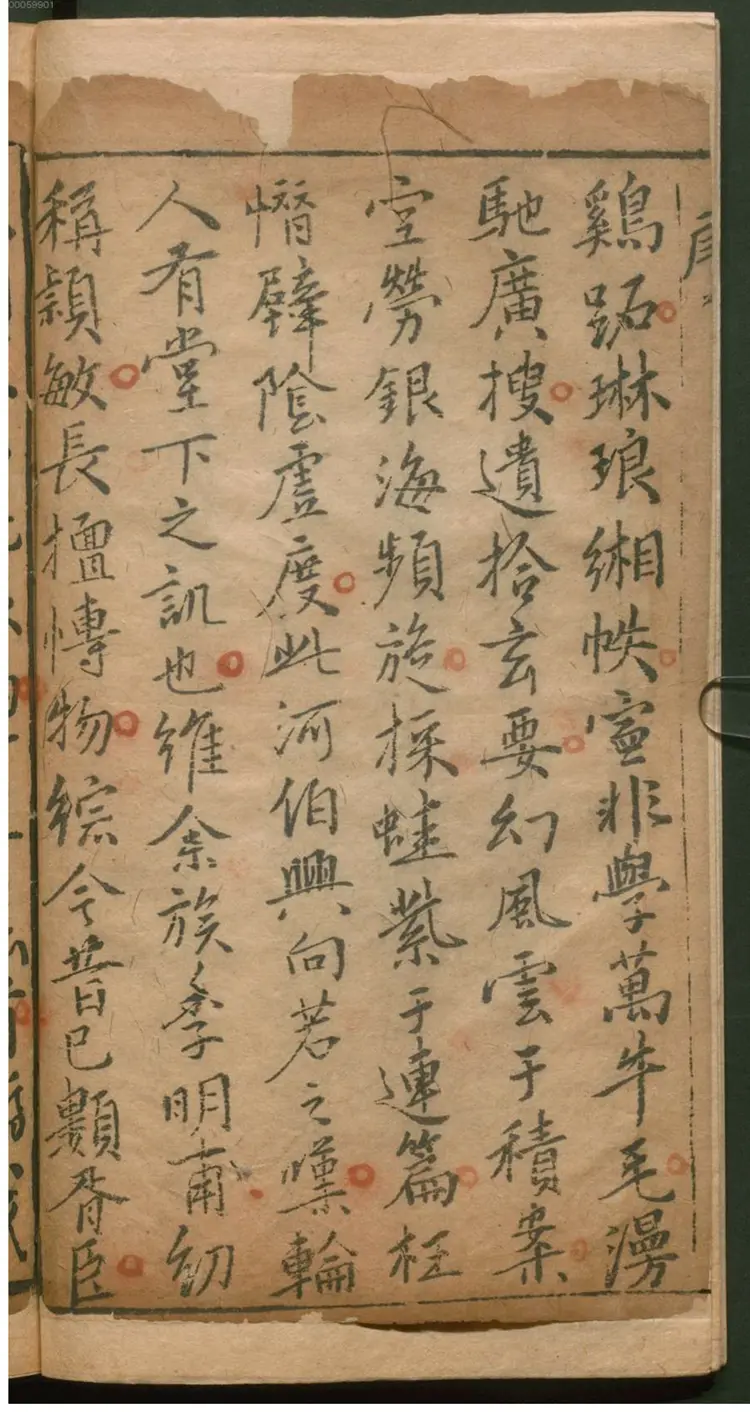 00059901
鷄跖琳琅緗帙寔非學萬牛毛漫
馳廣搜遺拾玄要幻風雲于積案
空勞銀海頻旋採蛙紫于連篇枉
惜隂虛度此河伯興向若之嘆輪
人有堂下之訊也維余族季明甫幼
稱穎敏長擅慱物綜今昔已類胥臣